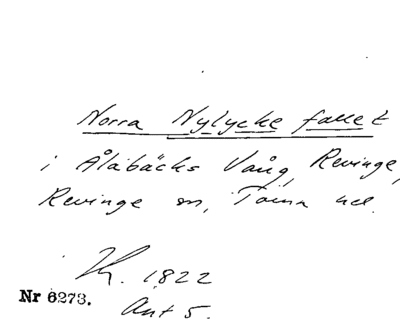 Norra Nylycke fallet
i Ålabäcks Vång, Revinge,
Revinge sn, Torna hd.
Kh. 1822
Nr 6273.
Akt 5.